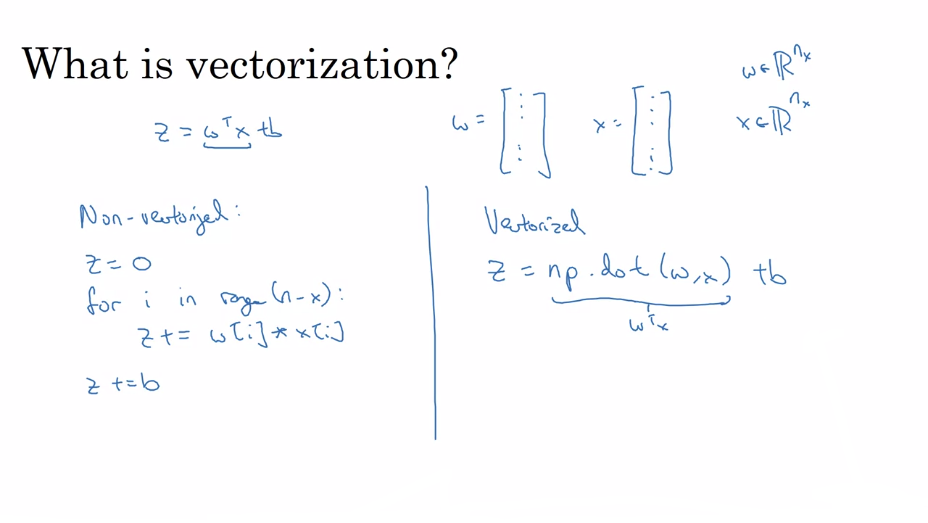 What is vectorization?
z = wᵀx + b
w = [⋮] x = [⋮] w ∈ ℝⁿˣ
x ∈ ℝⁿˣ
Non-vectorized:
z = 0
for i in range(n-x):
z += w[i] * x[i]
z += b
Vectorized
z = np.dot(w,x) + b
wᵀx